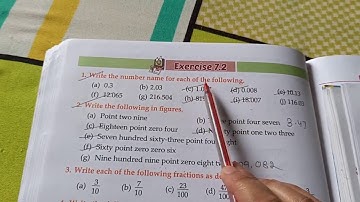 Exercise 7.2
1. Write the number name for each of the following.
(a) 0.3 (b) 2.03 (c) 1.0 (d) 0.008 (e) 10.13
(f) 12.065 (g) 216.504 (h) 819 (i) 18.007 (j) 116.03
2. Write the following in figures.
(a) Point two nine (b) point four seven 3.47
(c) Eighteen point zero four (d) point one two three
(e) Seven hundred sixty-three point four eight
(f) Sixty point zero six
(g) Nine hundred nine point zero eight two 909.082
3. Write each of the following fractions as de
(a) 3/10 (b) 7/10 (c) 23/100 (d) 43/100